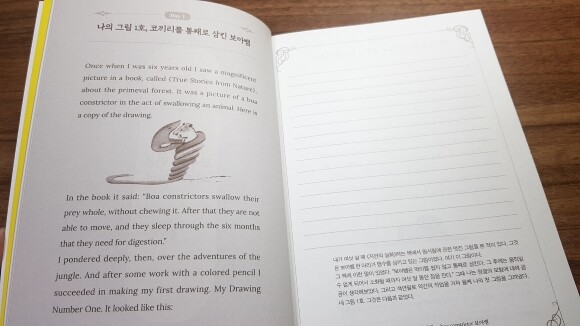 Day 1
나의 그림 1호, 코끼리를 통째로 삼킨 보아뱀
Once when I was six years old I saw a magnificent
picture in a book, called 《True Stories from Nature》,
about the primeval forest. It was a picture of a boa
constrictor in the act of swallowing an animal. Here is
a copy of the drawing.
In the book it said: “Boa constrictors swallow their
prey whole, without chewing it. After that they are not
able to move, and they sleep through the six months
that they need for digestion.”
I pondered deeply, then, over the adventures of the
jungle. And after some work with a colored pencil I
succeeded in making my first drawing. My Drawing
Number One. It looked like this:
내가 여섯 살 때 《자연의 실화》라는 책에서 원시림에 관한 멋진 그림을 본 적이 있다. 그것
은 보아뱀 한 마리가 맹수를 삼키고 있는 그림이었다. 여기 이 그림이다.
그 책에 이런 말이 있었다. “보아뱀은 먹이를 씹지 않고 통째로 삼킨다. 그 후에는 움직일
수 없게 되어서 소화될 때까지 여섯 달 동안 잠을 잔다.” 그때 나는 정글의 모험에 대해 곰
곰이 생각해보았다. 그리고 색연필로 약간의 작업을 거쳐 첫 그림을 그려냈다.
내 그림 1호. 그것은 다음과 같았다.
boa constrictor 보아뱀